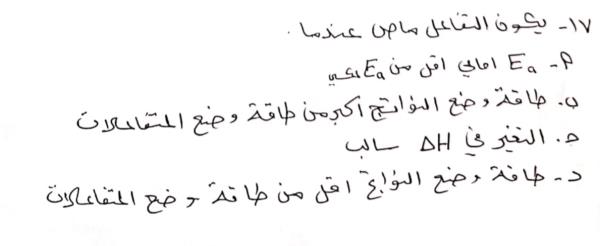 ١٧- يكون التفاعل ماص عندما .
أ- Ea امامي اقل من Ea عكسي
ب. طاقة وضع النواتج أكبر من طاقة وضع المتفاعلات
ج. التغير في ΔH سالب
د- طاقة وضع النواتج اقل من طاقة وضع المتفاعلات